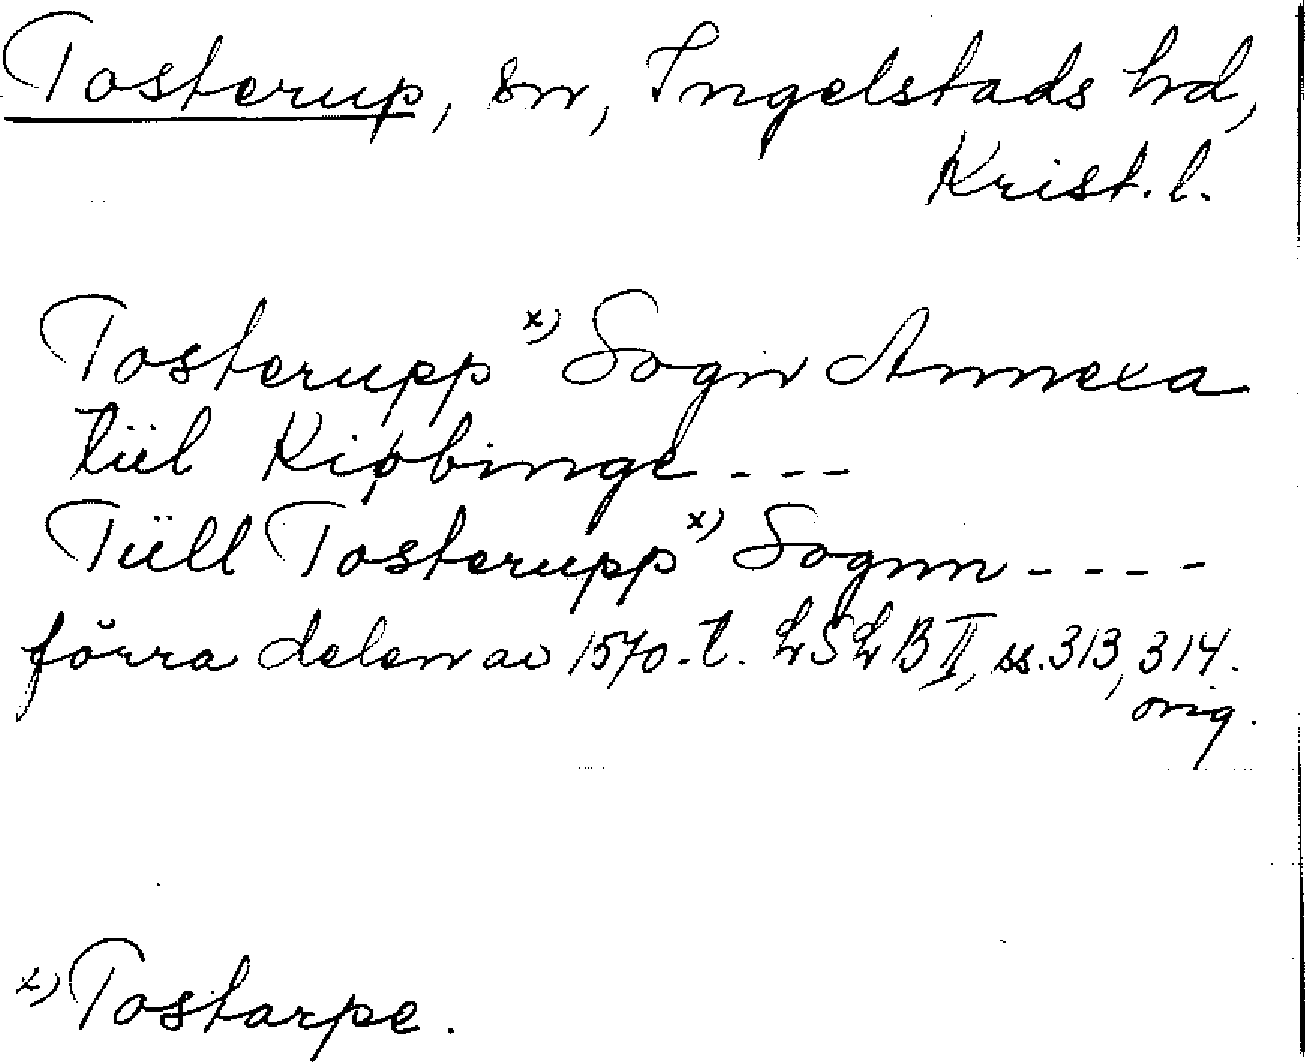 Tosterup, sn, Ingelstads hd,
Krist. l.
Tosterupp x) Sogn Annexa
tiil Kiøbinge - - -
Tiill Tosterupp x) Sognn - - - -
förra delen av 1570-t. LSLB II, ss. 313, 314.
orig.
x) Tostarpe.